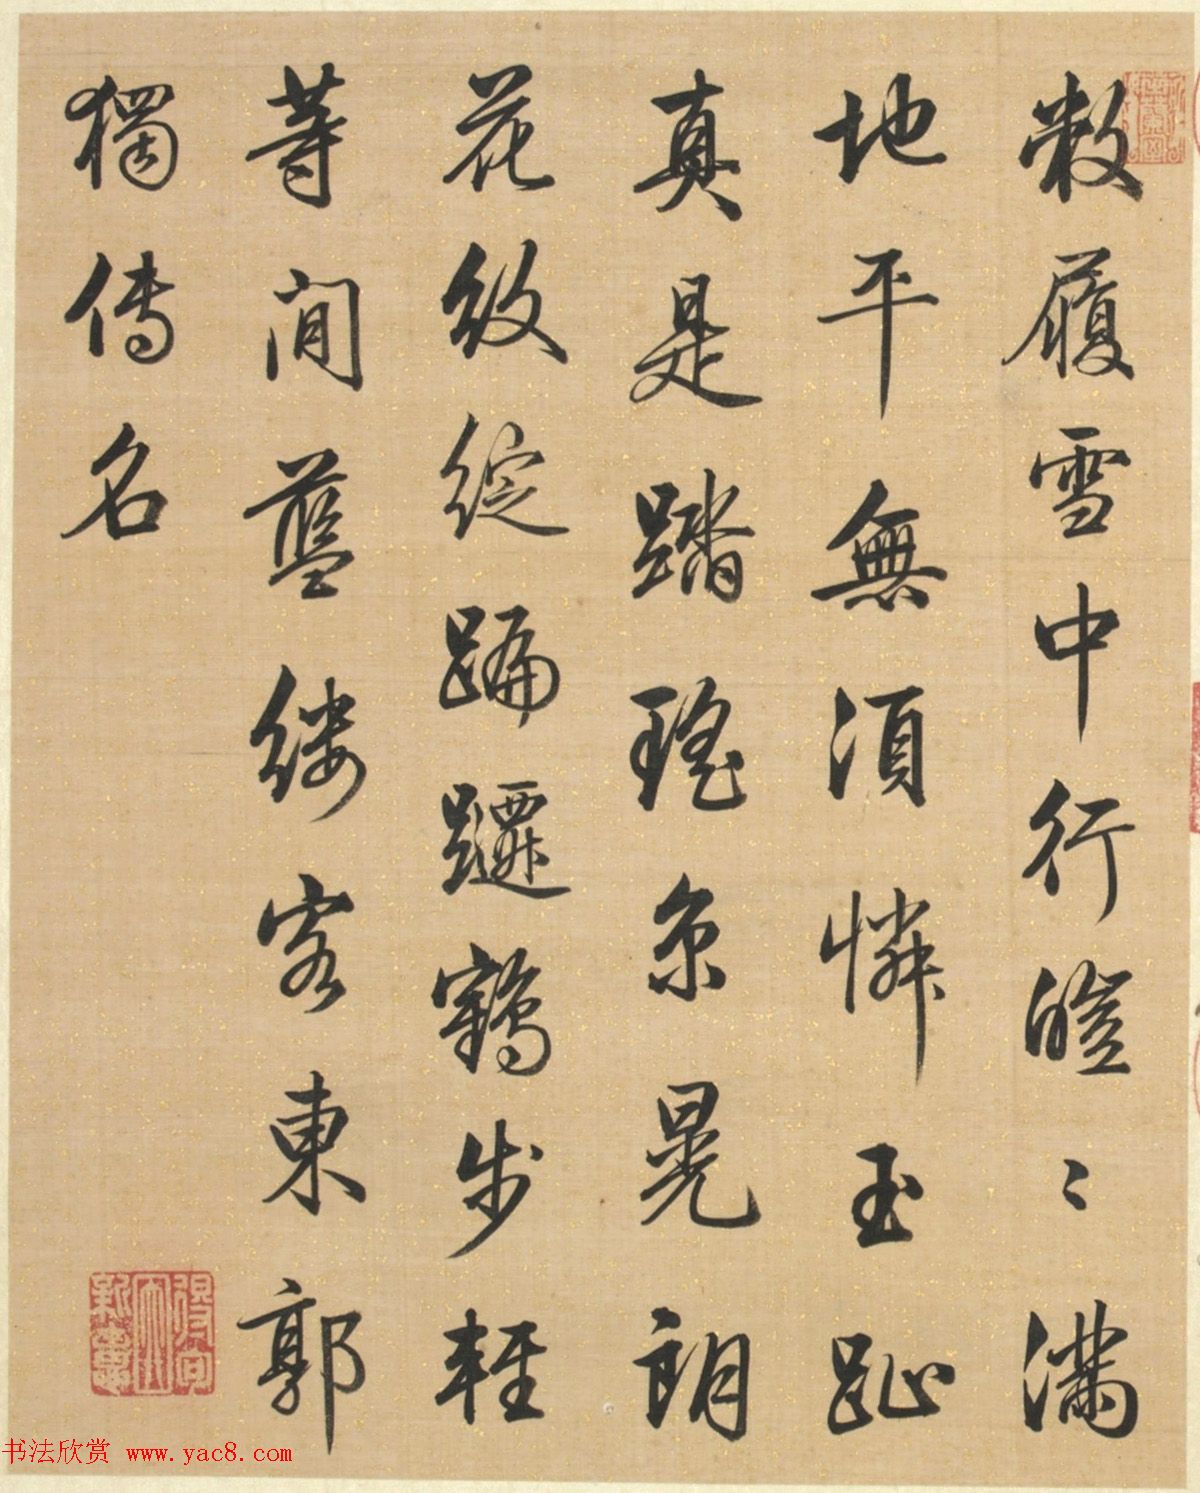 敝履雪中行皚〻滿
地平無須憐玉趾
真是踏瑤京晃朗
花紋綻蹁躚鶴步輕
等間藍縷客東郭
獨傳名
书法欣赏 www.yac8.com